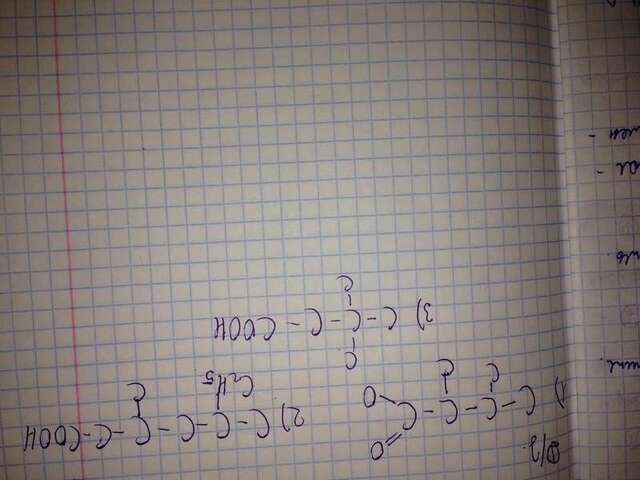 Д/з.
1) C - C - C - C =O - O
C C
2) C - C - C - C - C - COOH
C₂H₅ C
C
3) C - C - C - COOH
C